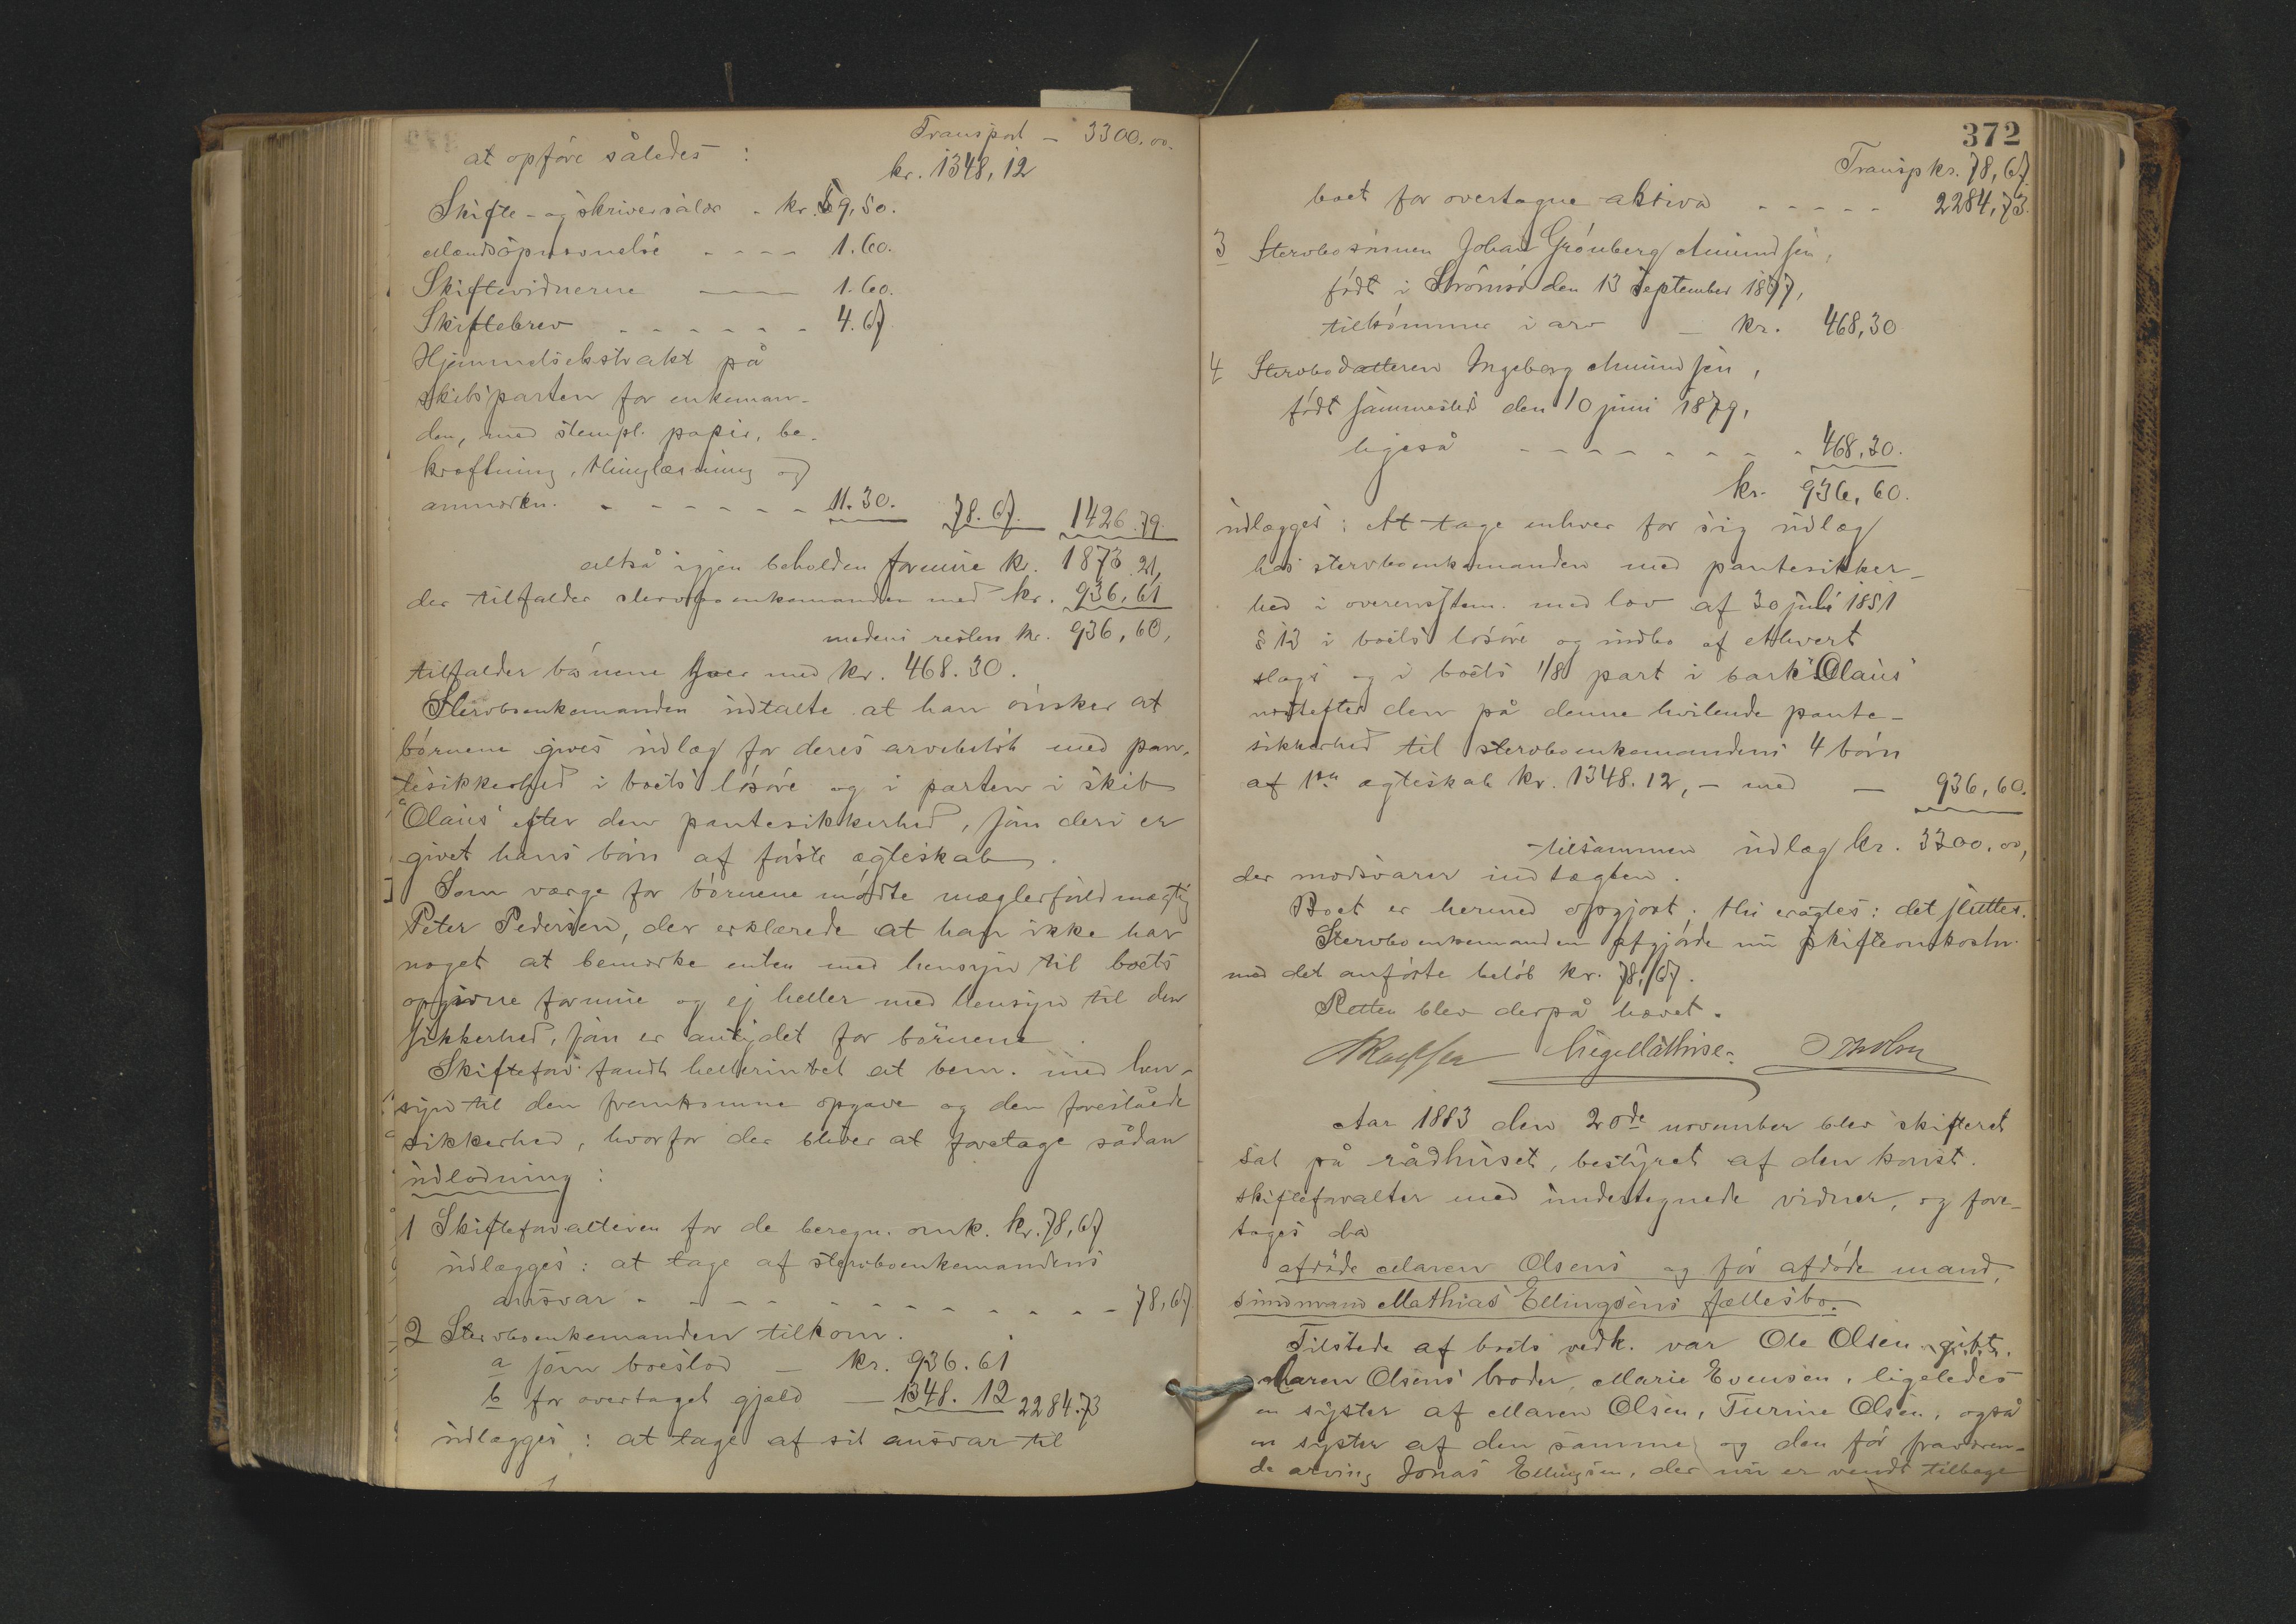 Transport — 3300.00.
at opføre således: kr. 1348,12
Skifte- og skriversalær - kr. 59,50.
Mandsopnævnelse - - - - 1.60.
Skiftevidnerne — 1.60.
Skiftebrev - - - - - - 4.67
Hjemmelsekstrakt på
skibsparten for enkeman-
den, med stempl. papir, be-
kræftning, thinglæsning og
anmærkn. - - - - - - 11.30. 78.67. 1426.79.
altså igjen beholden formue kr. 1873.21,
der tilfalder stervboenkemanden med kr. 936,61
medens resten kr. 936,60,
tilfalder børnene hver med kr. 468.30.
Stervboenkemanden udtalte at han ønsker at
børnene gives udlæg for deres arvebeløb med pan-
tesikkerhed i boets løsøre og i parten i skib
"Olaus" efter den pantesikkerhed, som deri er
givet hans børn af første ægteskab.
Som værge for børnene mødte mæglerfuldmægtig
Peter Pedersen, der erklærede at han ikke har
noget at bemærke enten med hensyn til boets
opgivne formue og ej heller med hensyn til den
sikkerhed, som er antydet for børnene.
Skifteforv. fandt hellerintet at bem. med hen-
syn til den fremkomne opgave og den foreslåede
sikkerhed, hvorfor der bliver at foretage sådan
udlodning:
1 Skifteforvalteren for de beregn. omk. kr. 78,67
udlægges: at tage af stervboenkemandens
ansvar - - - - - - - - - - - - 78,67.
2 Stervboenkemanden tilkom.
a som boeslod — kr. 936.61
b for overtaget gjæld — 1348.12 2284.73
udlægges: at tage af sit ansvar til
372
Transp kr. 78,67.
boet for overtagne aktiva - - - - - 2284,73.
3 Stervbosønnen Johan Grønberg Amundsen,
født i Strømsø den 13 September 1877,
tilkommer i arv — kr. 468,30
4 Stervbodatteren Ingeborg Amundsen,
født sammested den 10 juni 1879,
ligeså - - - - - - - - 468.30.
kr. 936,60.
udlægges: At tage enhver for sig udlæg
hos stervboenkemanden med pantesikker-
hed i overensstem. med lov af 30 juli 1851
§ 13 i boets løsøre og indbo af ethvert
slags og i boets 1/8 part i bark "Olaus"
næstefter den på denne hvilende pante-
sikkerhed til stervboenkemandens 4 børn
af 1ste ægteskab kr. 1348.12, — med — 936,60.
tilsammen udlæg kr. 3300.00,
der modsvarer indtægten.
Boet er hermed opgjort; thi eragtes: det sluttes.
Stervboenkemanden afgjørde nu skifteomkostn.
med det anførte beløb kr. 78,67.
Retten blev derpå hævet.
Aar 1883 den 20de november blev skifteret
sat på rådhuset, bestyret af den konst.
skifteforvalter med undertegnede vidner, og fore-
toges da
afdøde Maren Olsens og før afdøde mand,
sømand Mathias Ellingsens fællesbo.
Tilstede af boets vedk. var Ole Olsen, gift.
Maren Olsens broder, Marie Evensen, ligeledes
en syster af Maren Olsen, Turine Olsen, også
en syster af den samme og den før fraværen-
de arving Jonas Ellingsen, der nu er vendt tilbage